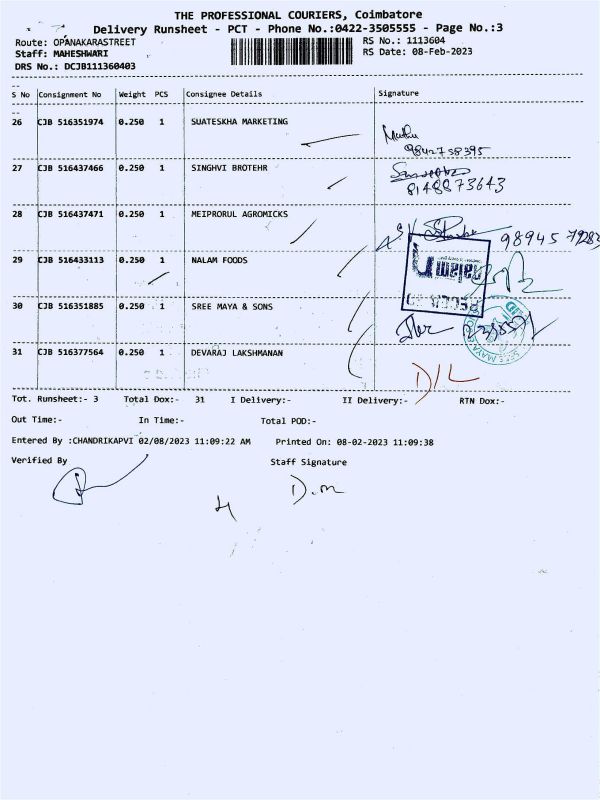 THE PROFESSIONAL COURIERS, Coimbatore
Delivery Runsheet - PCT - Phone No.:0422-3505555 - Page No.:3
Route: OPANAKARASTREET RS No.: 1113604
Staff: MAHESHWARI RS Date: 08-Feb-2023
DRS No.: DCJB111360403
S No Consignment No Weight PCS Consignee Details Signature
26 CJB 516351974 0.250 1 SUATESKHA MARKETING
9842758395
27 CJB 516437466 0.250 1 SINGHVI BROTEHR
8148873643
28 CJB 516437471 0.250 1 MEIPRORUL AGROMICKS
29 CJB 516433113 0.250 1 NALAM FOODS
nalam
30 CJB 516351885 0.250 1 SREE MAYA & SONS
31 CJB 516377564 0.250 1 DEVARAJ LAKSHMANAN
D/L
Tot. Runsheet:- 3 Total Dox:- 31 I Delivery:- II Delivery:- RTN Dox:-
Out Time:- In Time:- Total POD:-
Entered By :CHANDRIKAPVI 02/08/2023 11:09:22 AM Printed On: 08-02-2023 11:09:38
Verified By Staff Signature
D.m